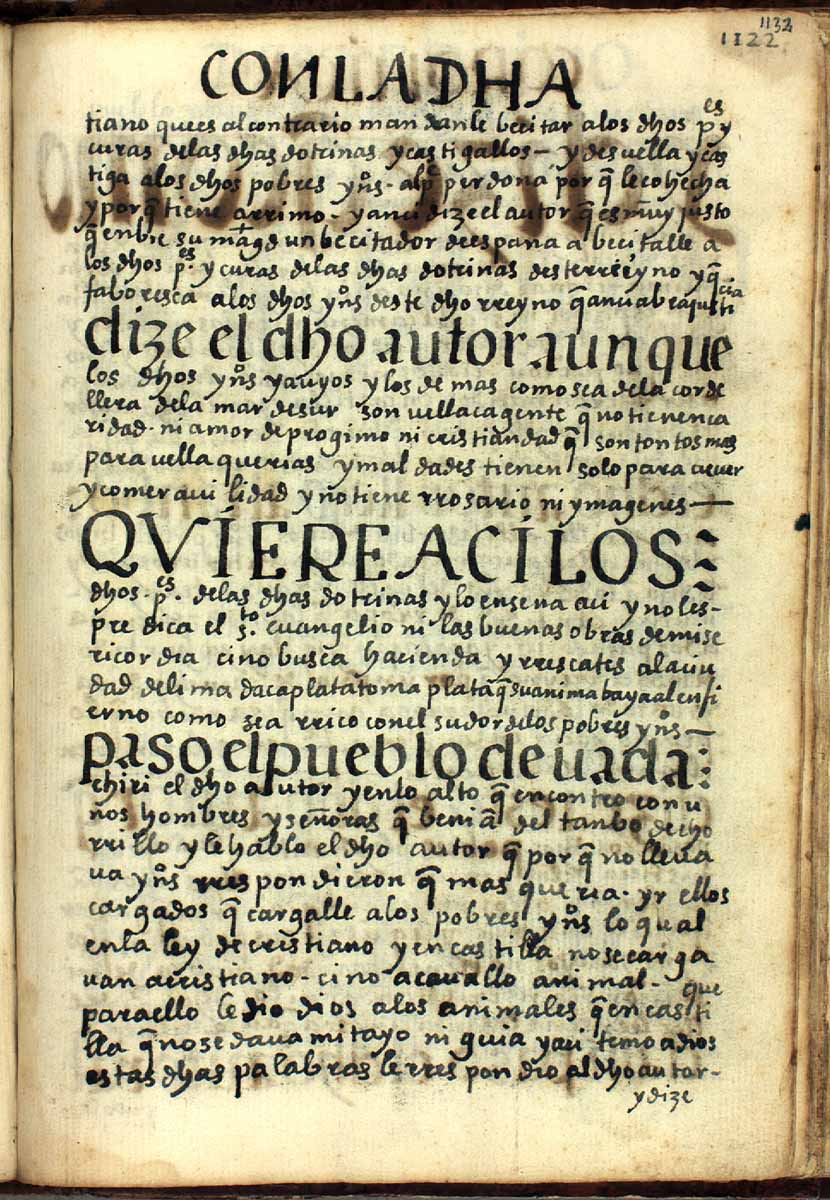 1132
1122
CON LA DHA
tiano quees al contrario mandanle becitar alos dhos p.es y
curas delas dhas dotrinas. ycastigallos – y desuella ycas
tiga alos dhos pobres yn̊s – al p.e perdona por q̃ le cohecha
y por q̃ tiene arrimo – y anci dize el autor q̃ es muy justo
q̃ enbie su mag.d un becitador de espana a becitalle a
los dhos p.es y curas delas dhas dotrinas desterreyno y q̃
faboresca alos dhos yn̊s deste dho rreyno q̃ anci abra justi
cia
dize el dho autor aunque
los dhos yn̊s yauyos y los demas como sea dela corde
llera dela mar de sur son vellaca gente q̃ no tienen ca
ridad – ni amor de progimo ni cristiandad q̃ son tontos mas
para vellaquerias y maldades tienen solo para cever
y comer auilidad y no tiene rrosario ni ymagenes —
QVÍERE ACÍ LOS
dhos – p.es delas dhas dotrinas y lo ensena aci y no les –
predica el s.to euangelio ni las buenas obras de mise
ricordia cino busca hacienda y rrescates ala ciu
dad de lima daca plata toma plata q̃ su anima baya al enfi
erno como sea rrico con el sudor delos pobres yn̊s —
paso el pueblo de uada
chiri el dho autor y en lo alto q̃ encontro con u
nos hombres y señoras q̃ benia del tanbo de cho
rrillo y le hablo el dho autor q̃ por q̃ no lleua
ua yn̊s rrespondieron q̃ mas queria – yr ellos
cargados q̃ cargalle alos pobres yn̊s lo qual
en la ley de cristiano y en castilla no se carga
uan a cristiano – cino a cauallo animal – que
para ello le dio dios alos animales q̃ en casti
lla q̃ no se daua mitayo ni guia y aci temo a dios
estas dhas palabras le rrespondio al dho autor –
y dize